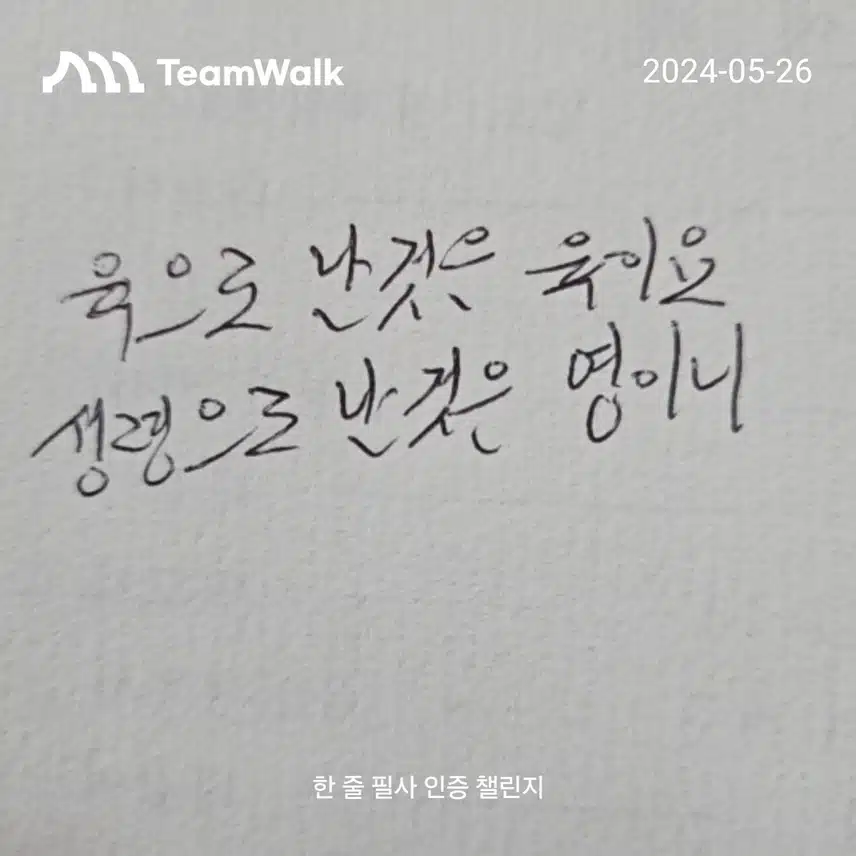 TeamWalk
2024-05-26
육으로 난것은 육이요
성령으로 난것은 영이니
한 줄 필사 인증 챌린지